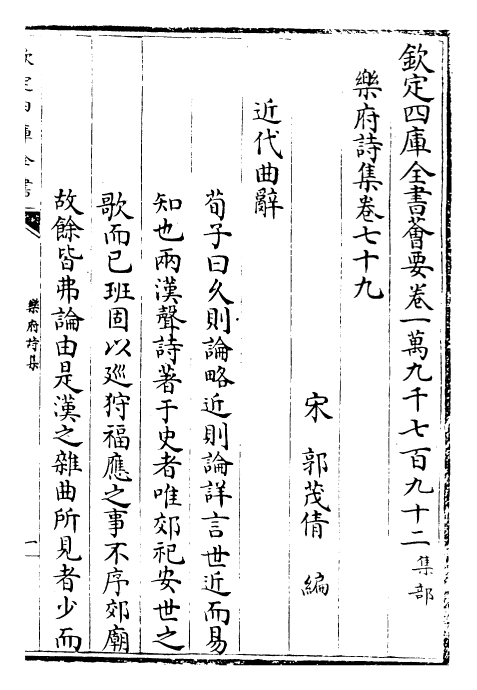 欽定四庫全書薈要卷一萬九千七百九十二集部
樂府詩集卷七十九
宋 郭茂倩 編
近代曲辭
荀子曰久則論略近則論詳言世近而易
知也兩漢聲詩著于史者唯郊祀安世之
歌而已班固以廵狩福應之事不序郊廟
故餘皆弗論由是漢之雜曲所見者少而
欽定四庫全書
樂府詩集
一